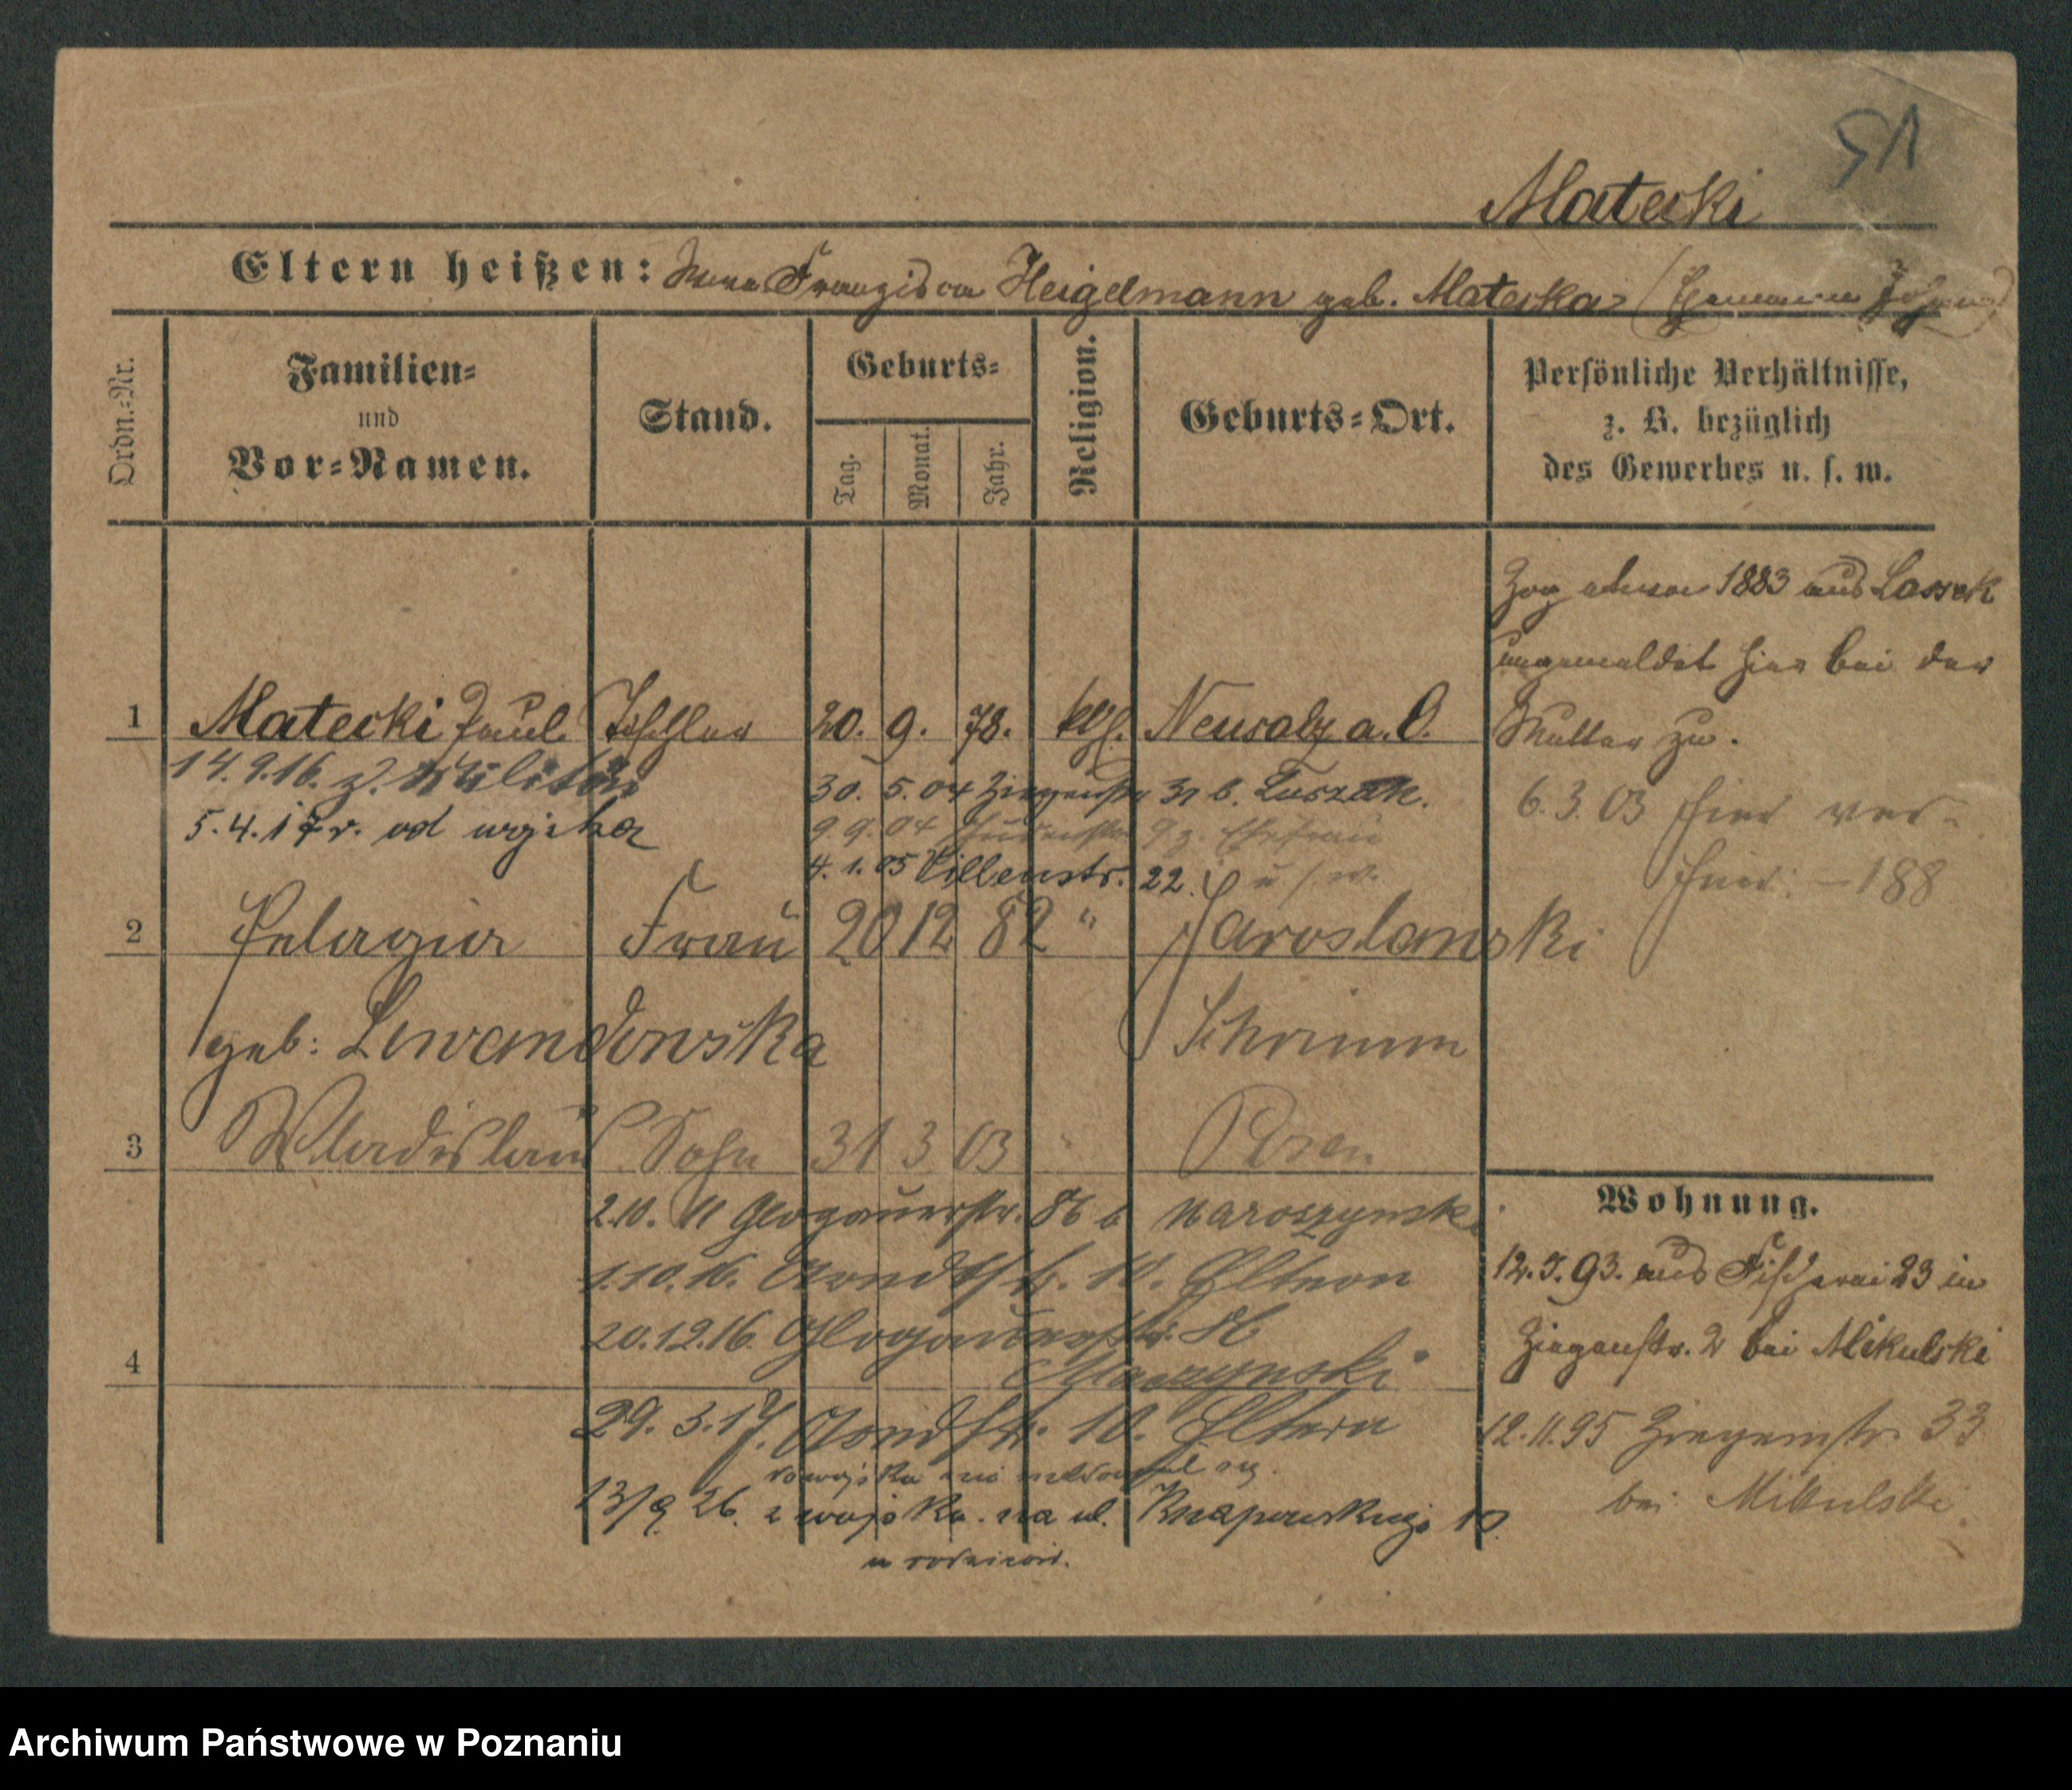 51
Matecki
Eltern heißen: Franziska Heigelmann geb. Matecka
Ordn.-Nr.
Familien- und Vor-Namen.
Stand.
Geburts-
Tag.
Monat.
Jahr.
Religion.
Geburts-Ort.
Persönliche Verhältnisse,
z. B. bezüglich
des Gewerbes u. s. w.
Zog 1883 aus Lassek
ungemeldet hier bei der
Mutter zu.
1 Matecki Paul Tischler 20. 9. 78. kth. Neusalz a. O.
14.9.16. z. Militär
30. 5. 04 Ziegenstr 31 b. Luszak.
6. 3. 03 hier ver-
5. 4. 17 r. od wojska
9. 9. 04 9 z. Ehefrau
4. 1. 05 Villenstr. 22. u. s. w.
188
2 Pelagia Frau 20 12 82 " Jaroslawski
geb: Lewandowska Schrimm
3 Wladislaus Sohn 31 3 03 " Posen
Wohnung.
2.10. 11 Glogauerstr. 86 b
1.10.16. Arndtstr. 10. Eltern
20.12.16. Glogauerstr. 86
4
29. 3. 17. Arndtstr. 10. Eltern
13/9 26. z wojska na ul. Knapowskiego 10
u rodziców.
12. 93. aus Fischerei 23 in
Ziegenstr. 2 bei Mikulski
12.11.95 Ziegenstr. 33
bei Mikulski
Archiwum Państwowe w Poznaniu